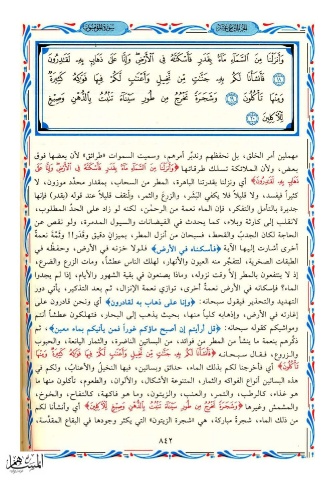 وَأَنزَلْنَا مِنَ السَّمَاءِ مَاءً بِقَدَرٍ فَأَسْكَنَّاهُ فِي الْأَرْضِ وَإِنَّا عَلَى ذَهَابٍ بِهِ لَقَادِرُونَ
﴿١٨﴾ فَأَنشَأْنَا لَكُم بِهِ جَنَّاتٍ مِّن نَّخِيلٍ وَأَعْنَابٍ لَّكُمْ فِيهَا فَوَاكِهُ كَثِيرَةٌ
وَمِنْهَا تَأْكُلُونَ ﴿١٩﴾ وَشَجَرَةً تَخْرُجُ مِن طُورِ سَيْنَاءَ تَنبُتُ بِالدُّهْنِ وَصِبْغٍ
لِّلْآكِلِينَ ﴿٢٠﴾
مهملين أمر الخلق، بل نحفظهم وندبّر أمرهم، وسميت السموات «طرائق» لأن بعضها فوق
بعض، ولأن الملائكة تسلك طرقاتها ﴿وَأَنزَلْنَا مِنَ السَّمَاءِ مَاءً بِقَدَرٍ فَأَسْكَنَّاهُ فِي الْأَرْضِ وَإِنَّا عَلَى
ذَهَابٍ بِهِ لَقَادِرُونَ﴾ أي وأنزلنا بقدرتنا الباهرة، المطر من السحاب، بمقدار محدّد موزون، لا
كثيراً فيفسد، ولا قليلاً فلا يكفي البشر، والزرع والثمر، ولنقف قليلاً عند قوله (بقدر) فإنها
جديرة بالتأمل والتفكر، فإن الماء نعمة من الرحمن، لكنه لو زاد على الحدّ المطلوب،
لانقلب إلى كارثة وبلاء، كما يحدث في الفيضانات والسيول المدمرة، ولو نقص عن
الحاجة لكان الجدبُ والقحط، فسبحان من أنزل المطر، بميزان دقيق وقَدَر!! وثمّة نعمة
أخرى أشارت إليها الآية ﴿فأسكناه في الأرض﴾ فلولا خزنه في الأرض، وحفظُه في
الطبقات الصخرية، لتتفجّر منه العيون والأنهار، لهلك الناس عطشاً، ومات الزرع والضرع،
إذ لا ينتفعون بالمطر إلاّ وقت نزوله، وماذا يصنعون في بقية الشهور والأيام، إذا لم يجدوا
الماء؟ فإسكانه في الأرض نعمةٌ أخرى، توازي نعمة الإنزال، ثم بعد التذكير، يأتي دور
التهديد والتحذير فيقول سبحانه: ﴿وإنا على ذهاب به لقادرون﴾ أي ونحن قادرون على
إغارته في الأرض، وإذهابه كلياً منها، بحيث يذهب إلى البحار، فتهلكون عطشاً أنتم
ومواشيكم كقوله سبحانه: ﴿قل أرأيتم إن أصبح ماؤكم غوراً فمن يأتيكم بماء معين﴾، ثم
ذكّرهم بنعمة ما ينشأ من المطر من فوائد، من البساتين الناضرة، والثمار اليانعة، والحبوب
والزروع، فقال سبحانه ﴿فَأَنشَأْنَا لَكُم بِهِ جَنَّاتٍ مِّن نَّخِيلٍ وَأَعْنَابٍ لَّكُمْ فِيهَا فَوَاكِهُ كَثِيرَةٌ وَمِنْهَا
تَأْكُلُونَ﴾ أي فأخرجنا لكم بذلك الماء، حدائق وبساتين، فيها النخيلُ والأعنابُ، ولكم في
هذه البساتين أنواع الفواكه والثمار، المتنوعة الأشكال، والألوان، والطعوم، تأكلون منها ما
هو غذاء، كالرطب، والتمر، والعنب، والزيتون، وما هو فاكهة، كالتفاح، والخوخ،
والمشمش وغيرها ﴿وَشَجَرَةً تَخْرُجُ مِن طُورِ سَيْنَاءَ تَنبُتُ بِالدُّهْنِ وَصِبْغٍ لِّلْآكِلِينَ﴾ أي وأنشأنا لكم
من ذلك الماء، شجرةً مباركة، هي «شجرة الزيتون» التي يكثر وجودها في البقاع المقدّسة،
٨٤٢